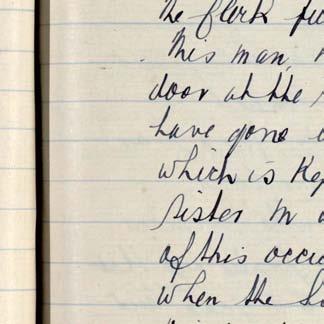 the flerk
This man,
door at the
have gone
which is Kep
sister in
of this occu
when the